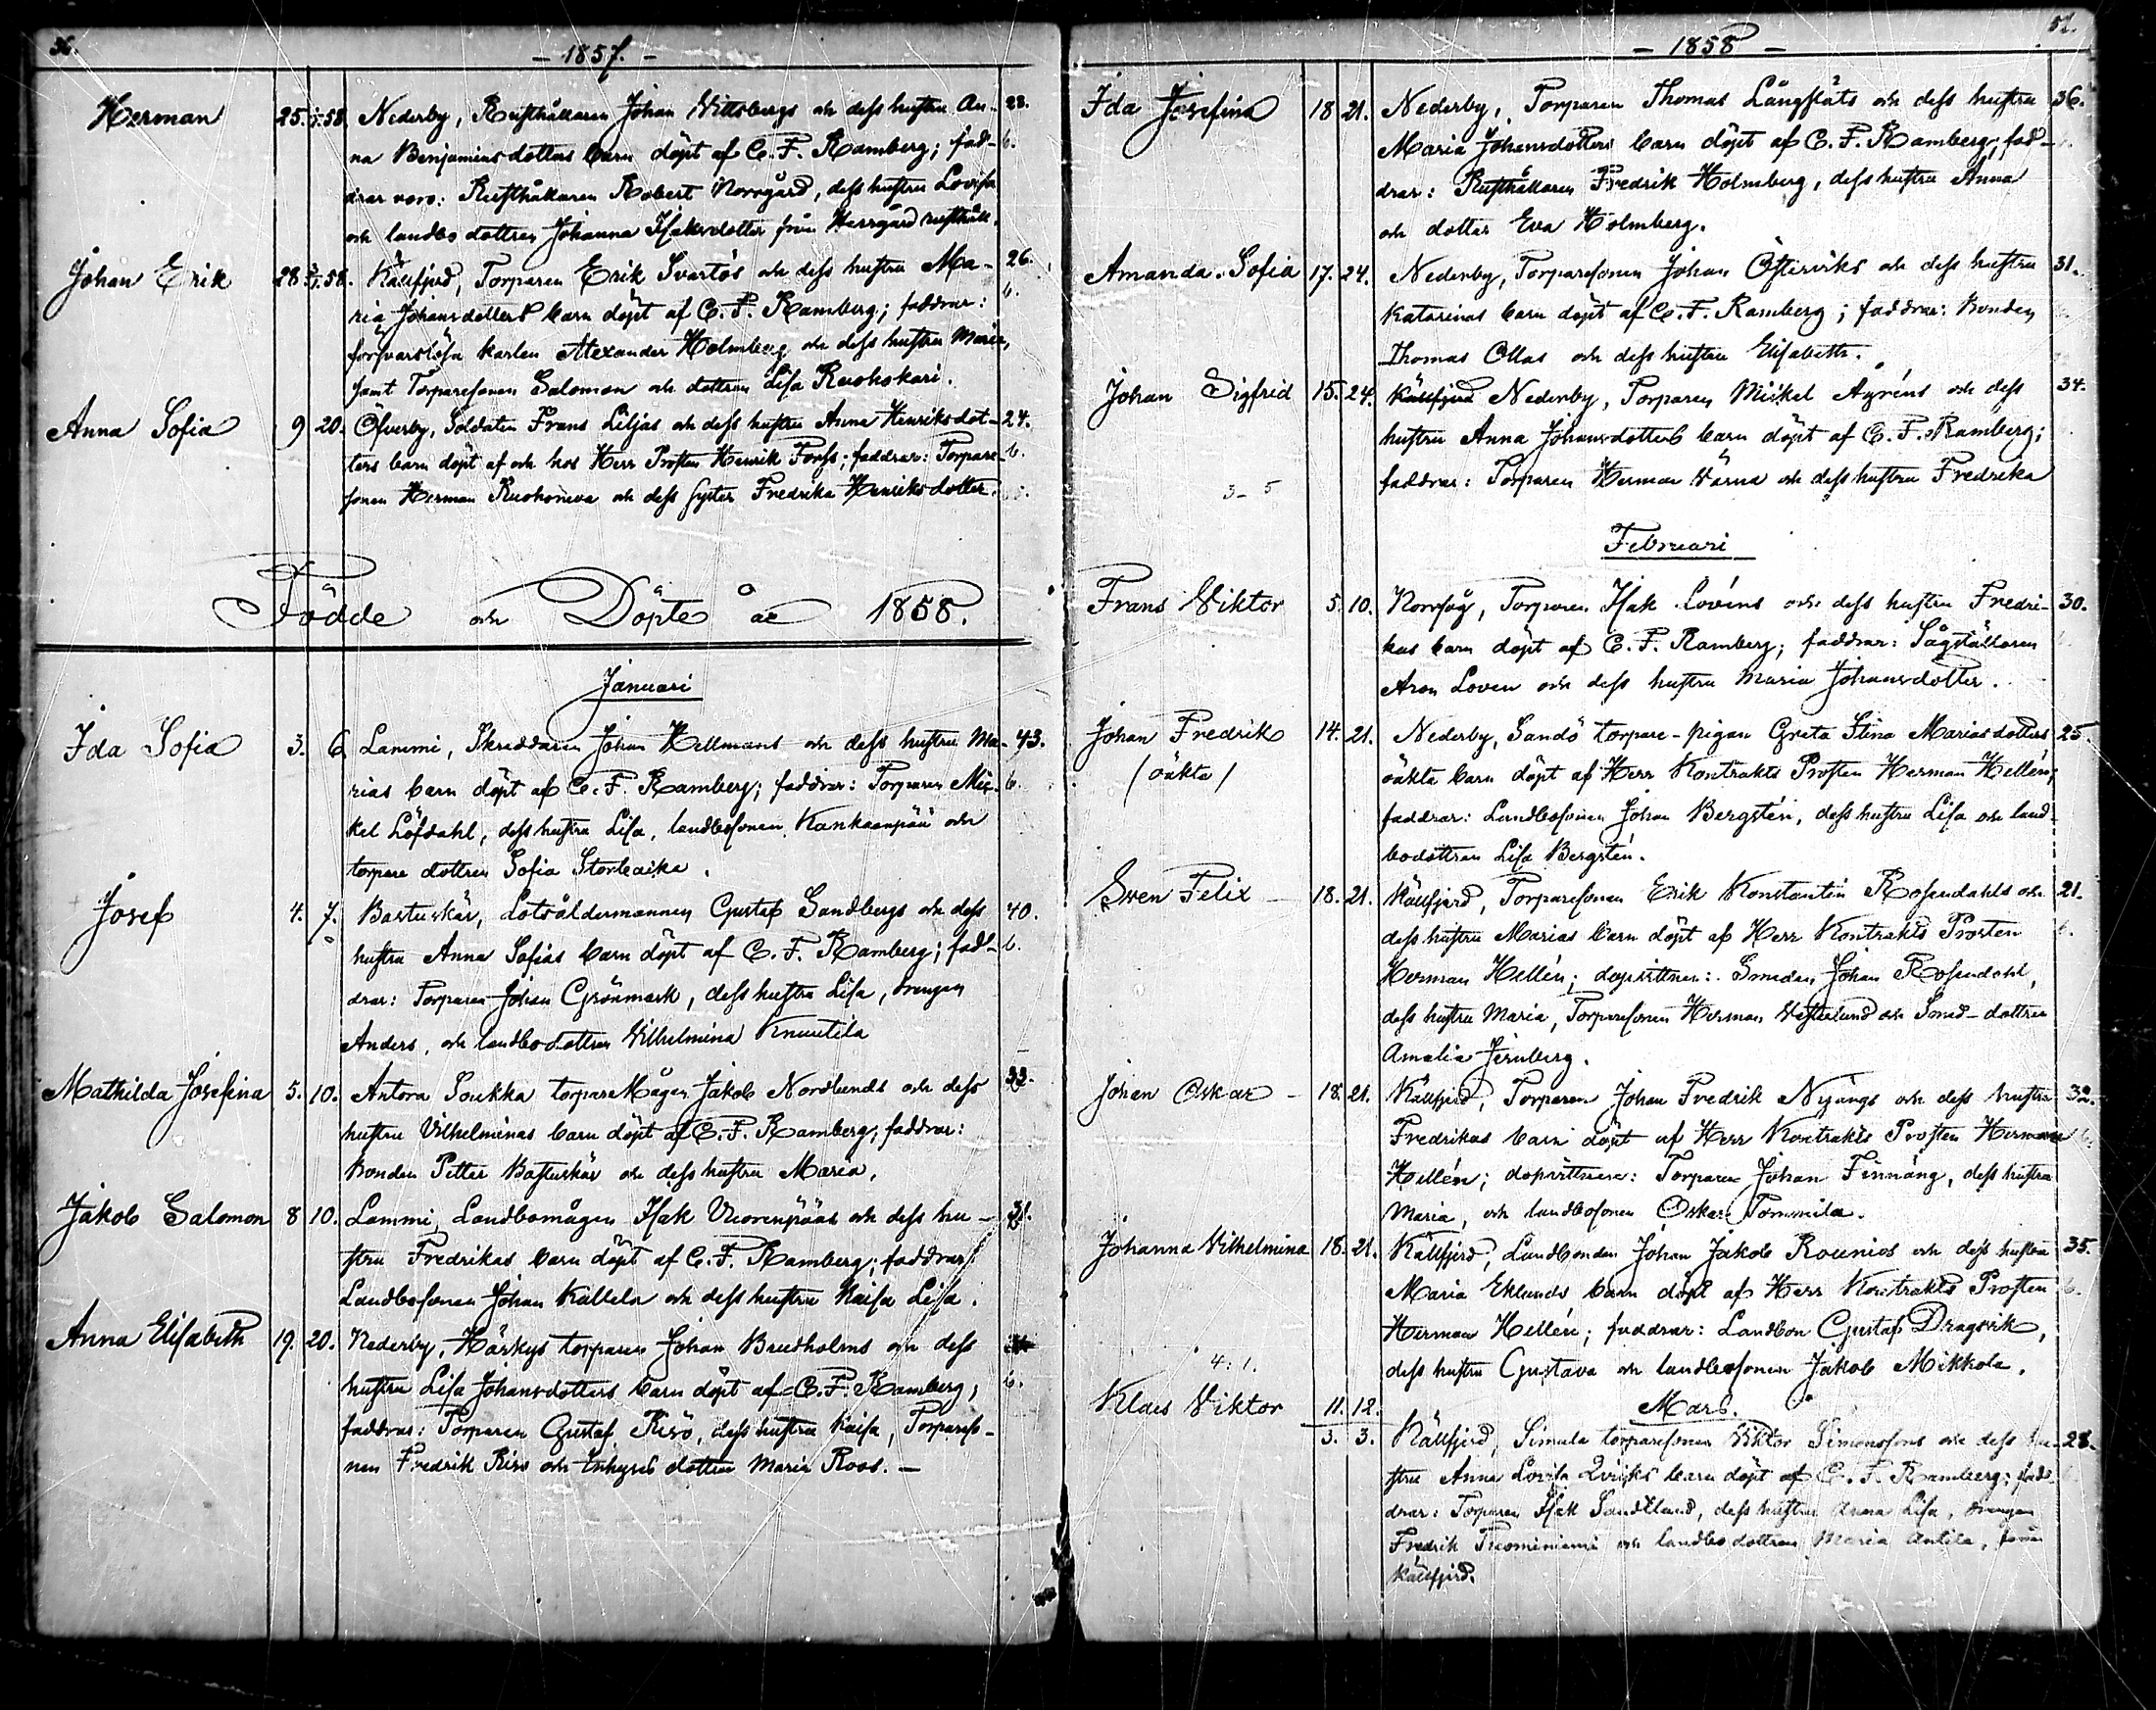 36.
- 1857. -
Herman 25. 1/1.58. Nederby, Rusthållaren Johan Vittsbergs och dess hustru An- 28.
na Benjaminsdotters barn döpt af C. F. Ramberg; fad- b.
drar voro: Rusthållaren Robert Norrgård, dess hustru Lovisa
och landbo dottren Johanna Isaksdotter från Herrgård rusthåll.
Johan Erik 28 3/1.58. Källfjerd, Torparen Erik Svartös och dess hustru Ma- 26.
ria Johansdotters barn döpt af C. F. Ramberg; faddrar: b.
försvarslösa karlen Alexander Holmberg och dess hustru Maria,
samt Torparesonen Salomon och dottren Lisa Ruohokari.
Anna Sofia 9 20. Öfverby, Soldaten Frans Liljas och dess hustru Anna Henriksdot- 24.
ters barn döpt af och hos Herr Prosten Henrik Forss; faddrar: Torpare- b.
sonen Herman Ruohoneva och dess syster Fredrika Henriksdotter.
Födde och Döpte år 1858.
Januari
Ida Sofia 3. 6 Lammi, Skreddaren Johan Hellmans och dess hustru Ma- 43.
rias barn döpt af C. F. Ramberg; faddrar: Torparen Mic- b.
kel Löfdahl, dess hustru Lisa, landbosonen Kankaanpää och
torpare dottren Sofia Storbacka.
Josef 4. 7. Bastuskär, Lotsåldermannen Gustaf Sandbergs och dess 40.
hustru Anna Sofias barn döpt af C. F. Ramberg; fad- b.
drar: Torparen Johan Grönmark, dess hustru Lisa, drengen
Anders, och landbodottren Vilhelmina Knuutila
Mathilda Josefina 5. 10. Antora Soukka torpareMågen Jakob Nordlunds och dess 33.
hustru Vilhelminas barn döpt af C. F. Ramberg; faddrar:
Bonden Petter Bastuskär och dess hustru Maria.
Jakob Salomon 8 10. Lammi Landbomågen Isak Vuorenpääs och dess hu- 31.
stru Fredrikas barn döpt af C. F. Ramberg; faddrar:
Landbosonen Johan Kallela och dess hustru Kaisa Lisa.
Anna Elisabeth 19. 20. Nederby, Härkys torparen Johan Bredholms och dess
hustru Lisa Johansdotters barn döpt af C. F. Ramberg, b.
faddrar: Torparen Gustaf Risö, dess hustru Kaisa, Torpareso-
nen Fredrik Risö och Inhyses dottren Maria Roos. -
57.
- 1858 -
Ida Josefina 18 21. Nederby, Torparen Thomas Långslåts och dess hustru 36.
Maria Johansdotters barn döpt af C. F. Ramberg; fad-
drar: Rusthållaren Fredrik Holmberg, dess hustru Anna
och dotter Eva Holmberg.
Amanda Sofia 17. 24. Nederby, Torparesonen Johan Österviks och dess hustru 31.
Katarinas barn döpt af C. F. Ramberg; faddrar: Bonden
Thomas Ollas och dess hustru Elisabeth.
Johan Sigfrid 15. 24. Källfjerd Nederby, Torparen Mickel Ågréns och dess 34.
hustru Anna Johansdotters barn döpt af C. F. Ramberg;
faddrar: Torparen Herman Värnä och dess hustru Fredrika
3 - 5
Februari
Frans Viktor 5. 10. Norrsåg, Torparen Isak Lovéns och dess hustru Fredri- 30.
kas barn döpt af C. F. Ramberg; faddrar: Sågställaren
Aron Loven och dess hustru Maria Johansdotter.
Johan Fredrik 14. 21. Nederby, Sandö torpare-pigan Greta Stina Mariasdotters 25.
/ oäkta / oäkta barn döpt af Herr Kontrakts Prosten Herman Hellén;
faddrar: Landbosonen Johan Bergstén, dess hustru Lisa och land-
bodottren Lisa Bergstén.
Sven Felix 18. 21. Källfjerd, Torparesonen Erik Konstantin Rosendahls och 21.
dess hustru Marias barn döpt af Herr Kontrakts Prosten b.
Herman Hellén; dopvittnen: Smeden Johan Rosendahl,
dess hustru Maria, Torparesonen Herman Vesterlund och Smed-dottren
Amalia Jernberg.
Johan Oskar - 18. 21. Källfjerd, Torparen Johan Fredrik Nyängs och dess hustru 32.
Fredrikas barn döpt af Herr Kontrakts Prosten Herman b.
Hellén; dopvittnen: Torparen Johan Finnäng, dess hustru
Maria, och landbosonen Oskar Tommila.
Johanna Vilhelmina 18. 21. Källfjerd, Landbonden Johan Jakob Rounios och dess hustru 35.
Maria Eklunds barn döpt af Herr Kontrakts Prosten b.
Herman Hellén; faddrar: Landbon Gustaf Dragsvik,
dess hustru Gustava och landbosonen Jakob Mikkola.
4: 1.
Mars.
Klaes Viktor 11. 12.
3. 3. Källfjerd, Simula torparesonen Viktor Simonssons och dess hu- 28.
stru Anna Lovisa Qviriks barn döpt af C. F. Ramberg; fad-
drar: Torparen Isak Sandstand, dess hustru Anna Lisa, drengen
Fredrik Tuominiemi och landbo dottren Maria Antila, från
Källfjerd.